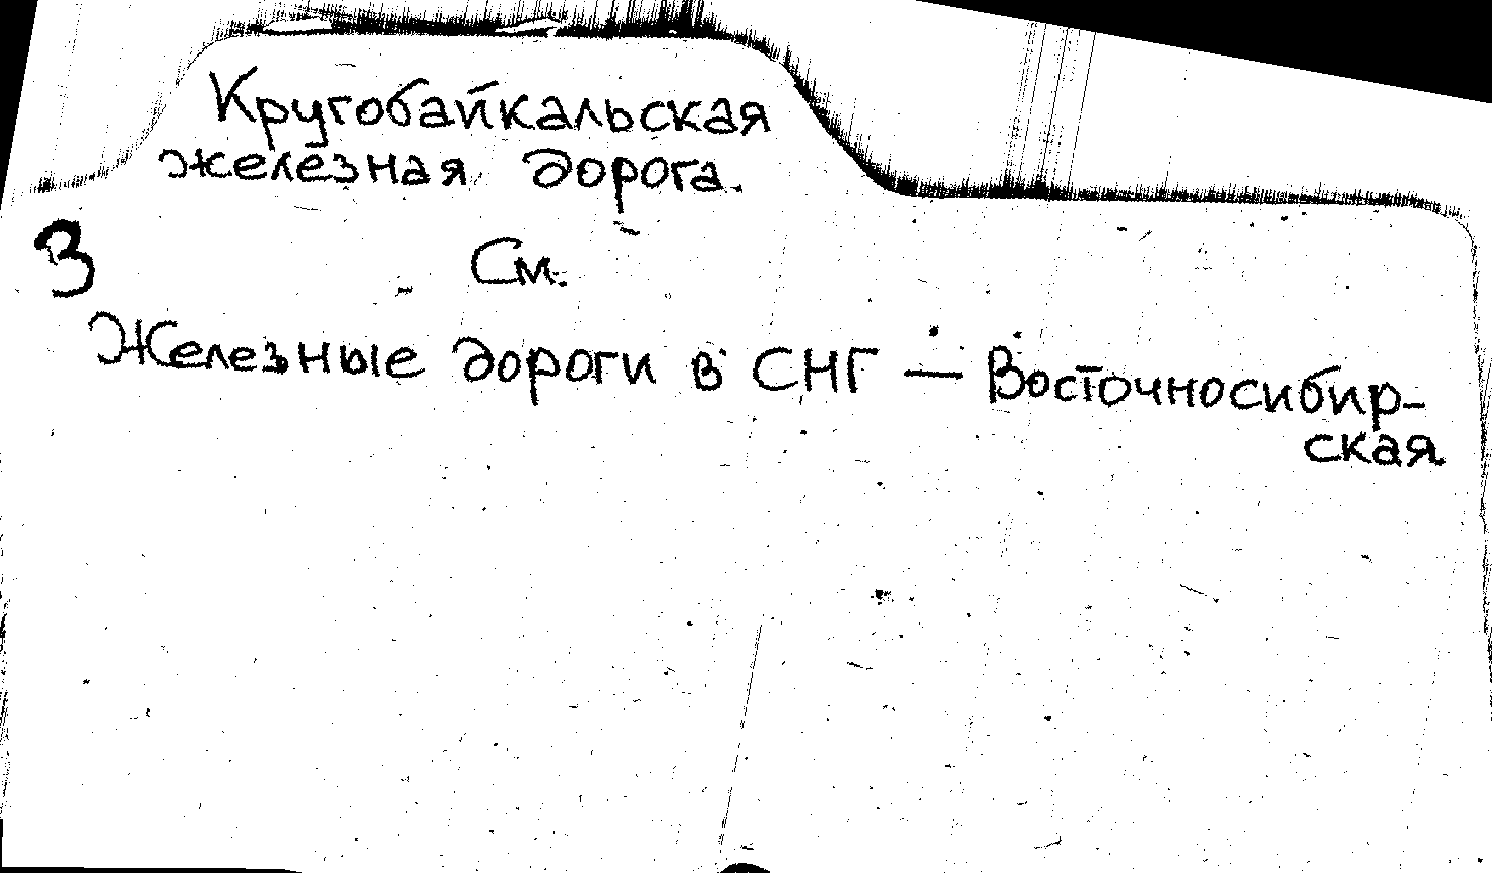 Кругобайкальская
железная дорога.
З
См.
Железные дороги в СНГ — Восточносибир-
ская.